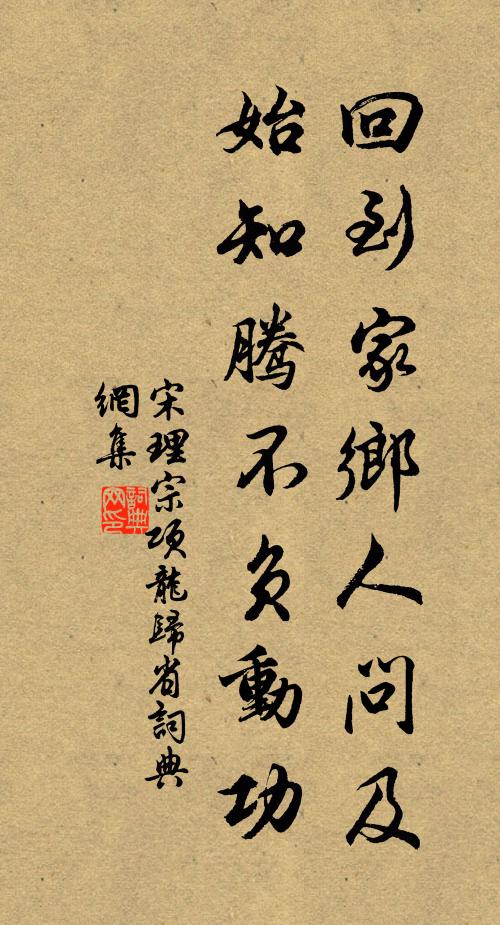 回到家鄉人問及
始知騰不負動功
宋理宗項龍歸省詞典
網集
詞典
网印